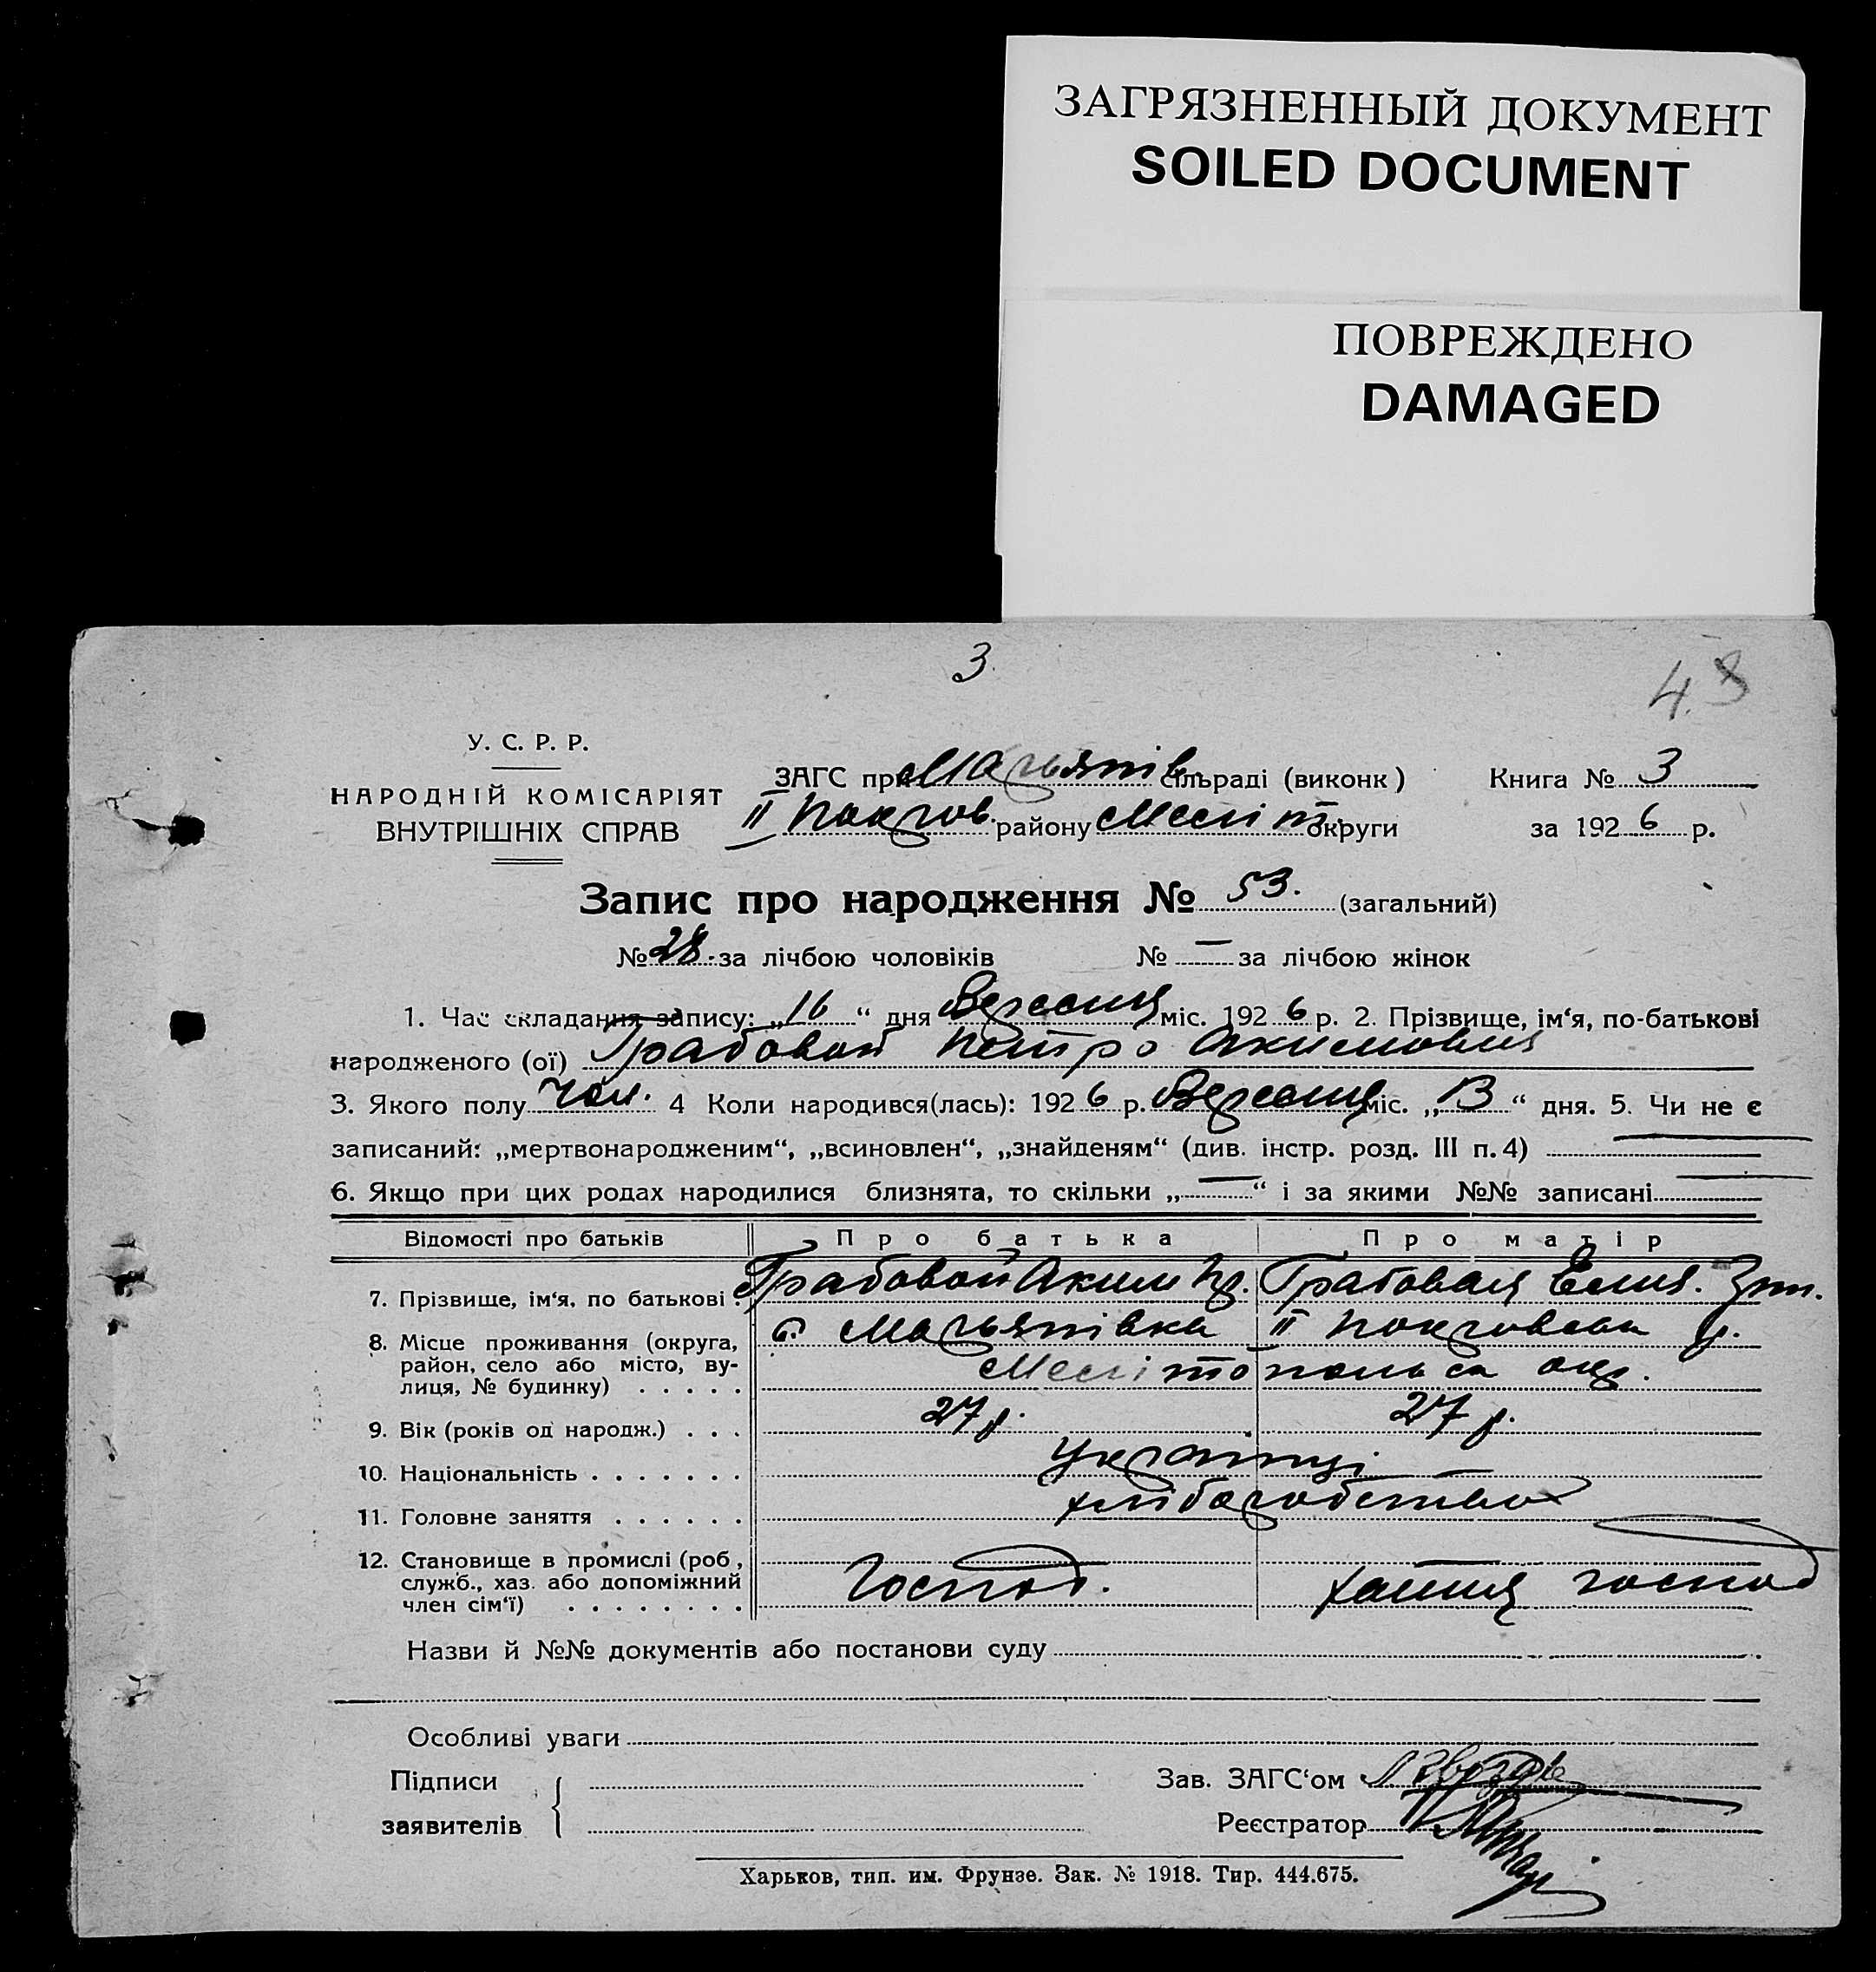 ЗАГРЯЗНЕННЫЙ ДОКУМЕНТ
SOILED DOCUMENT
ПОВРЕЖДЕНО
DAMAGED
3.
У. С. Р. Р.
НАРОДНІЙ КОМІСАРІЯТ
ВНУТРІШНІХ СПРАВ
ЗАГС при Мар'янів. сільраді (виконк) Книга № 3
II Покров. району Меліт. округи за 1926 р.
Запис про народження № 53. (загальний)
№ 28. за лічбою чоловіків № — за лічбою жінок
1. Час складання запису: „16“ дня Вересня міс. 1926 р. 2. Прізвище, ім‘я, по-батькові
народженого (ої) Грабовой Петро Акимович
3. Якого полу чол. 4 Коли народився(лась): 1926 р. Вересня міс. „13“ дня. 5. Чи не є
записаний: „мертвонародженим“, „всиновлен“, „знайденям“ (див. інстр. розд. III п. 4) —
6. Якщо при цих родах народилися близнята, то скільки „—“ і за якими №№ записані —
Відомості про батьків Про батька Про матір
7. Прізвище, ім‘я, по батькові . Грабовой Аким Грабовая
8. Місце проживання (округа, район, село або місто, вулиця, № будинку) . . . . . с. Мар'янівка II Покровськ р.
Мелітопольск окр.
9. Вік (років од народж.) . . . 27 р. 27 р.
10. Національність . . . . . . . Українці
11. Головне заняття . . . . . . хліборобство
12. Становище в промислі (роб., служб., хаз. або допоміжний член сім‘ї) . . . . . . . . Господ. хатня господ
Назви й №№ документів або постанови суду
Особливі уваги
Підписи заявителів
Зав. ЗАГС‘ом
Реєстратор
Харьков, тип. им. Фрунзе. Зак. № 1918. Тир. 444.675.